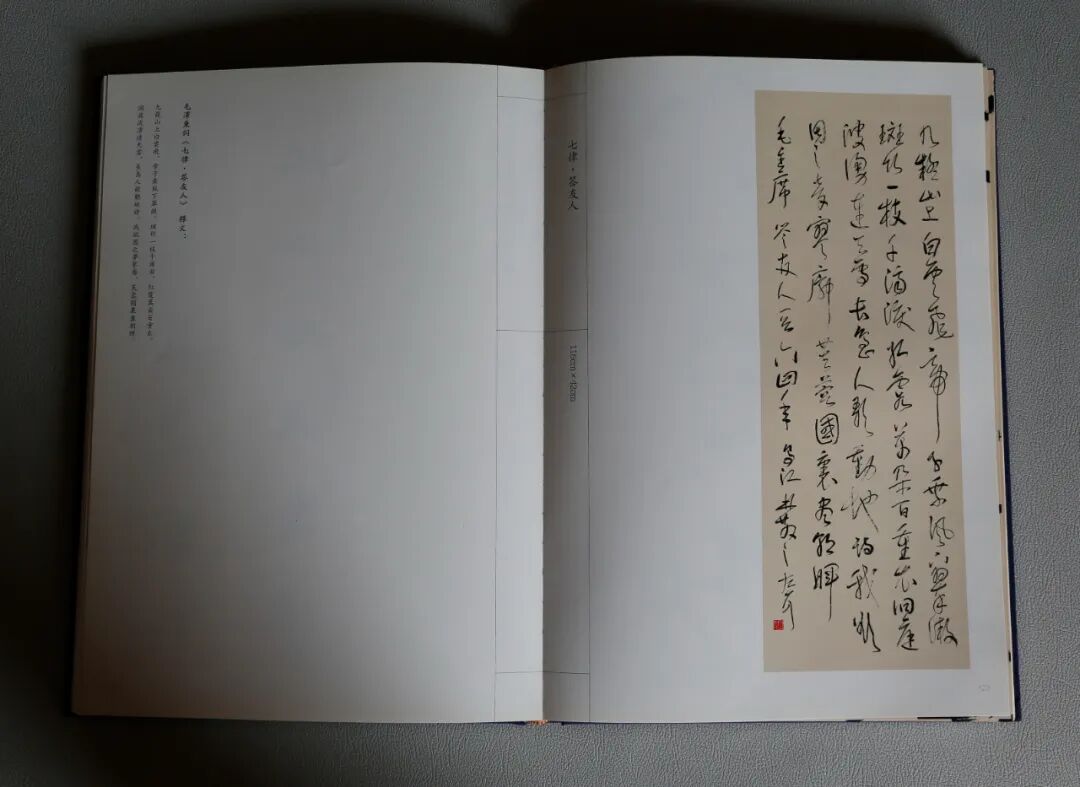 九嶷山上白雲飛帝子乘風下翠微
斑竹一枝千滴淚紅霞萬朵百重衣洞庭
波涌連天雪長島人歌動地詩我欲
因之夢寥廓芙蓉國裏盡朝暉
毛主席答友人 烏江林散之左耳
七律·答友人
116cm×42cm
毛澤東詞《七律·答友人》釋文:
九嶷山上白雲飛,帝子乘風下翠微。斑竹一枝千滴淚,紅霞萬朵百重衣。
洞庭波涌連天雪,長島人歌動地詩。我欲因之夢寥廓,芙蓉國裏盡朝暉。